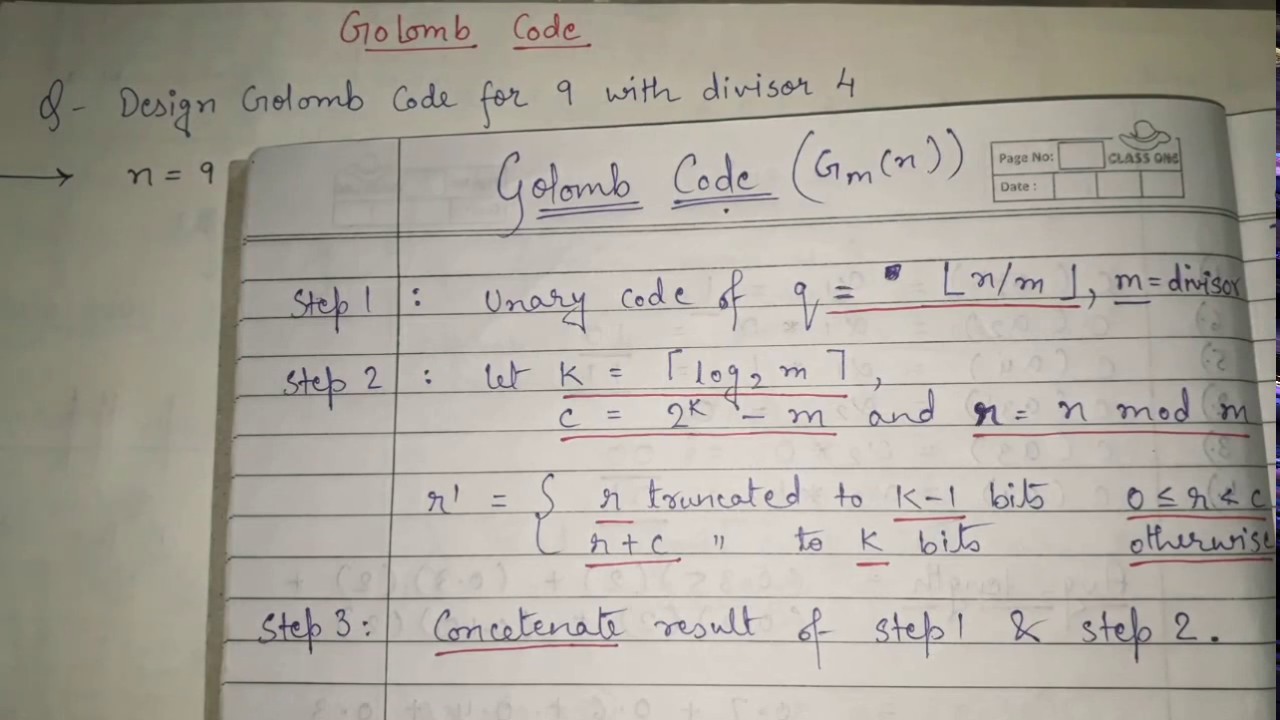 Golomb Code
Q- Design Golomb Code for 9 with divisor 4
→ n = 9
Golomb Code (Gm(n))
Page No:
CLASS ONE
Date :
Step 1 : Unary code of q = ⌊n/m⌋, m = divisor
Step 2 : let K = ⌈log₂ m⌉,
c = 2ᴷ - m and r = n mod m
r' = { r truncated to K-1 bits 0 ≤ r < c
r+c " to K bits otherwise
Step 3 : Concetenate result of step 1 & step 2.